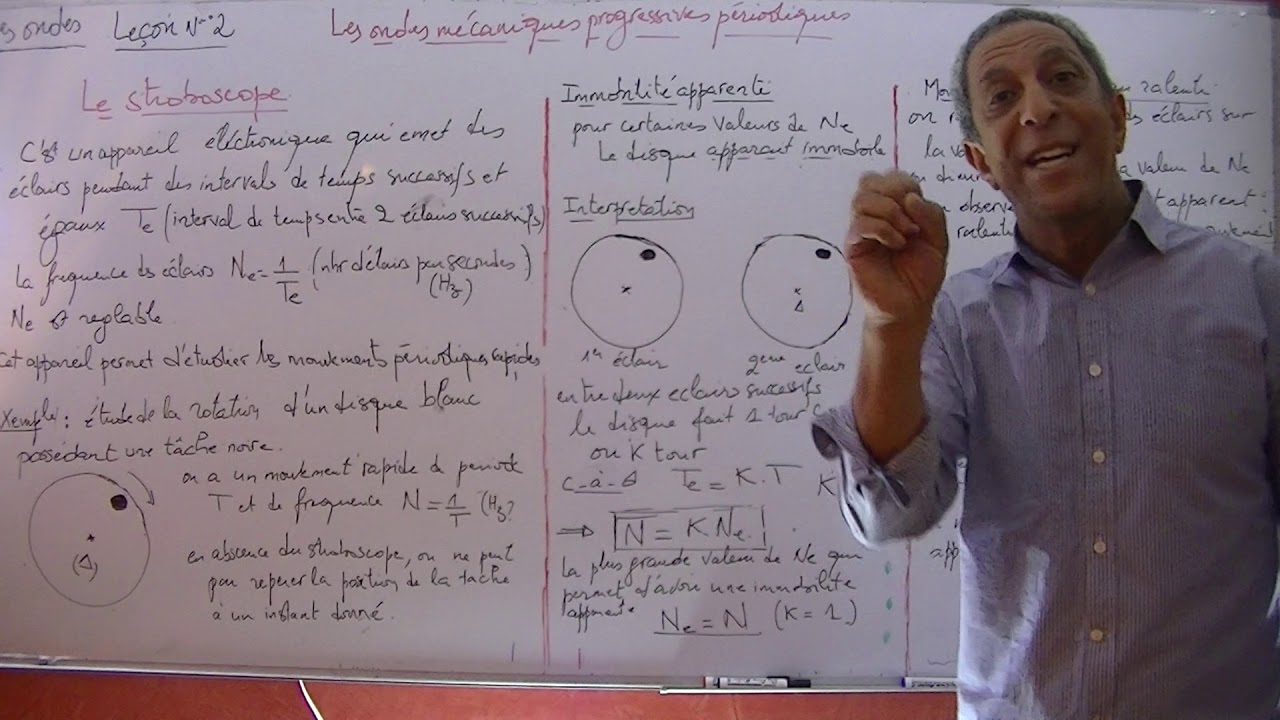 es ondes Leçon N°2
Les ondes mécaniques progressives périodiques
Le stroboscope
C'est un appareil éléctronique qui emet des
éclairs pendant des intervals de temps successifs et
égaux Te (interval de temps entre 2 éclairs successifs)
La frequence des éclairs Ne = 1/Te (nbr d'éclairs par secondes)
(Hz)
Ne est reglable
Cet appareil permet d'étudier les mouvements périodiques rapides
Exemple : étude de la rotation d'un disque blanc
possédant une tâche noire.
on a un mouvement rapide de periode
T et de frequence N = 1/T (Hz)
(Δ)
en absence du stroboscope, on ne peut
pas reperer la position de la tache
à un instant donné.
Immobilité apparente
pour certaines valeurs de Ne
Le disque apparait immobile
Interpretation
Δ
1er éclair
2eme eclair
entre deux eclairs successifs
le disque fait 1 tour
ou K tour
c-à-d Te = K.T K
⇒ N = K Ne
La plus grande valeur de Ne qui
permet d'avoir une immobilité
apparente
Ne = N (K = 1)
ralenti
on
des éclairs sur
la
valeur de Ne
observe
apparent
ralenti